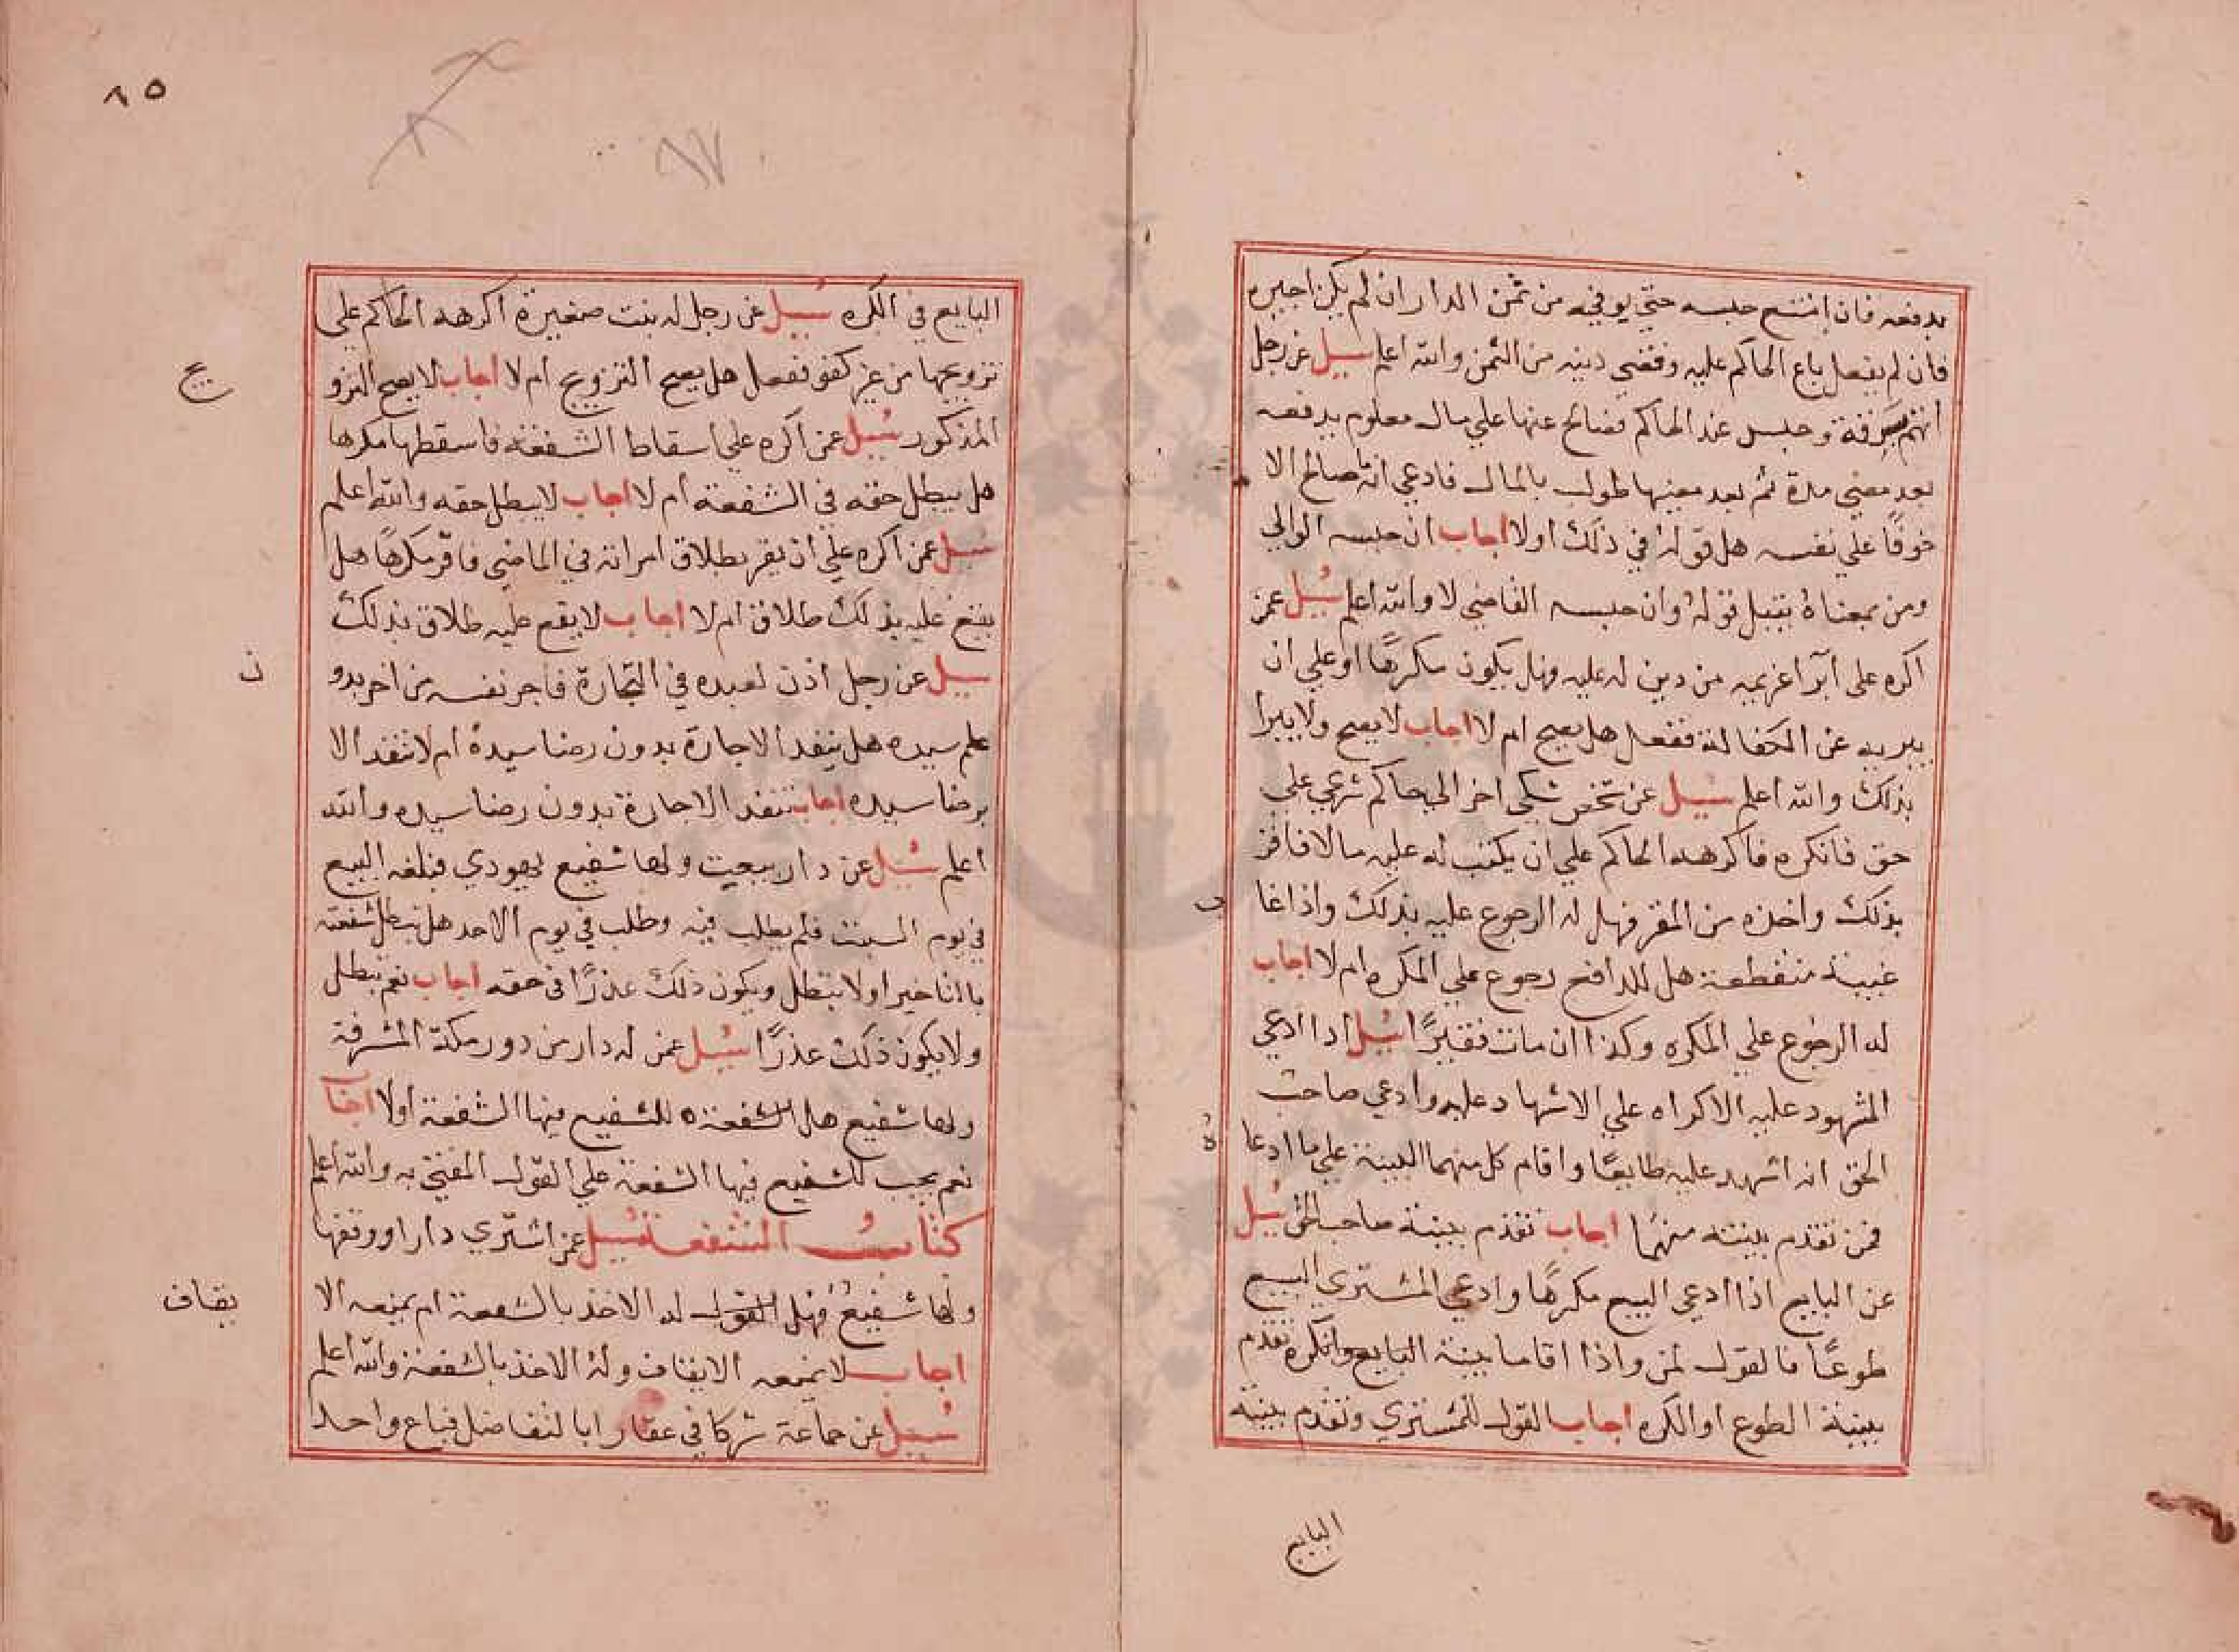 بدفعه فان امتنع حبسه حتي يوفيه من ثمن الدار ان لم يكن اجبره
فان لم يفعل باع الحاكم عليه وقضي دينه من الثمن والله اعلم سيل عن رجل
اتهم بسرقة وحبس عند الحاكم فصالح عنها علي مال معلوم يدفعه
بعد مضي مدة ثم بعد مضيها طولب بالمال فادعي انه ما صالح الا
خوفًا علي نفسه هل قوله في ذلك اولا اجاب ان حبسه الوالي
ومن بمعناه يقبل قوله وان حبسه القاضي لا والله اعلم سيل عمن
اكره علي ابرآ غريمه من دين له عليه وهل يكون مكرهًا او علي ان
يبريه عن الكفالة ففعل هل يصح ام لا اجاب لا يصح ولا يبرا
بذلك والله اعلم سيل عن شخص شكي اخر الي حاكم شرعي علي
حق فانكره فاكرهه الحاكم علي ان يكتب له عليه مالا فاقر
بذلك واخذه من المقر فهل له الرجوع عليه بذلك واذا غا
ب
غيبة منقطعة هل للدافع رجوع علي المكره ام لا اجاب
له الرجوع علي المكره وكذا ان مات فقيرًا سيل اذا ادعي
المشهود عليه الاكراه علي الاشهاد عليه وادعي صاحب
الحق انه اشهد عليه طايعًا واقام كل منهما البينة علي ما ادعا
ه
فمن تقدم بينته منهما اجاب تقدم بينة صاحب الحق سيل
عن البايع اذا ادعي البيع مكرهًا وادعي المشتري البيع
طوعًا فالقول لمن واذا اقاما بينة البايع والكره تقدم
بينة الطوع او الكره اجاب القول للمشتري وتقدم بينة
البايع
٨٥
٨٧
البايع في الكره سيل عن رجل له بنت صغيرة اكرهه الحاكم علي
تزويجها من غير كفو ففعل هل يصح التزويج ام لا اجاب لا يصح التزو
يج
المذكور سيل عمن اكره علي اسقاط الشفعة فاسقطها مكرها
هل يبطل حقه في الشفعة ام لا اجاب لا يبطل حقه والله اعلم
سيل عمن اكره علي ان يقر بطلاق امراته في الماضي فاقر مكرهًا هل
يقع عليه بذلك طلاق ام لا اجاب لا يقع عليه طلاق بذلك
سيل عن رجل اذن لعبده في التجارة فاجر نفسه من اخر بدو
ن
علم سيده هل ينفد الاجارة بدون رضا سيده ام لا تنفد الا
برضا سيده اجاب تنفد الاجارة بدون رضا سيده والله
اعلم سيل عن دار بيعت ولها شفيع يهودي فبلغه البيع
في يوم السبت فلم يطلب فيه وطلب في يوم الاحد هل تبطل شفعته
بالتاخير او لا تبطل ويكون ذلك عذرًا في حقه اجاب نعم تبطل
ولا يكون ذلك عذرًا سيل عمن له دار من دور مكة المشرفة
ولها شفيع هل الشفعة للشفيع فيها الشفعة اولا اجاب
نعم يجب للشفيع فيها الشفعة علي القول المفتي به والله اعلم
كتاب الشفعة سيل عمن اشتري دارا ووقفها
ولها شفيع فهل القول له الاخذ بالشفعة ام يمنعه الا
يقاف
اجاب لا يمنعه الايقاف وله الاخذ بالشفعة والله اعلم
سيل عن جماعة شركا في عقار ابالتفاضل فباع واحد